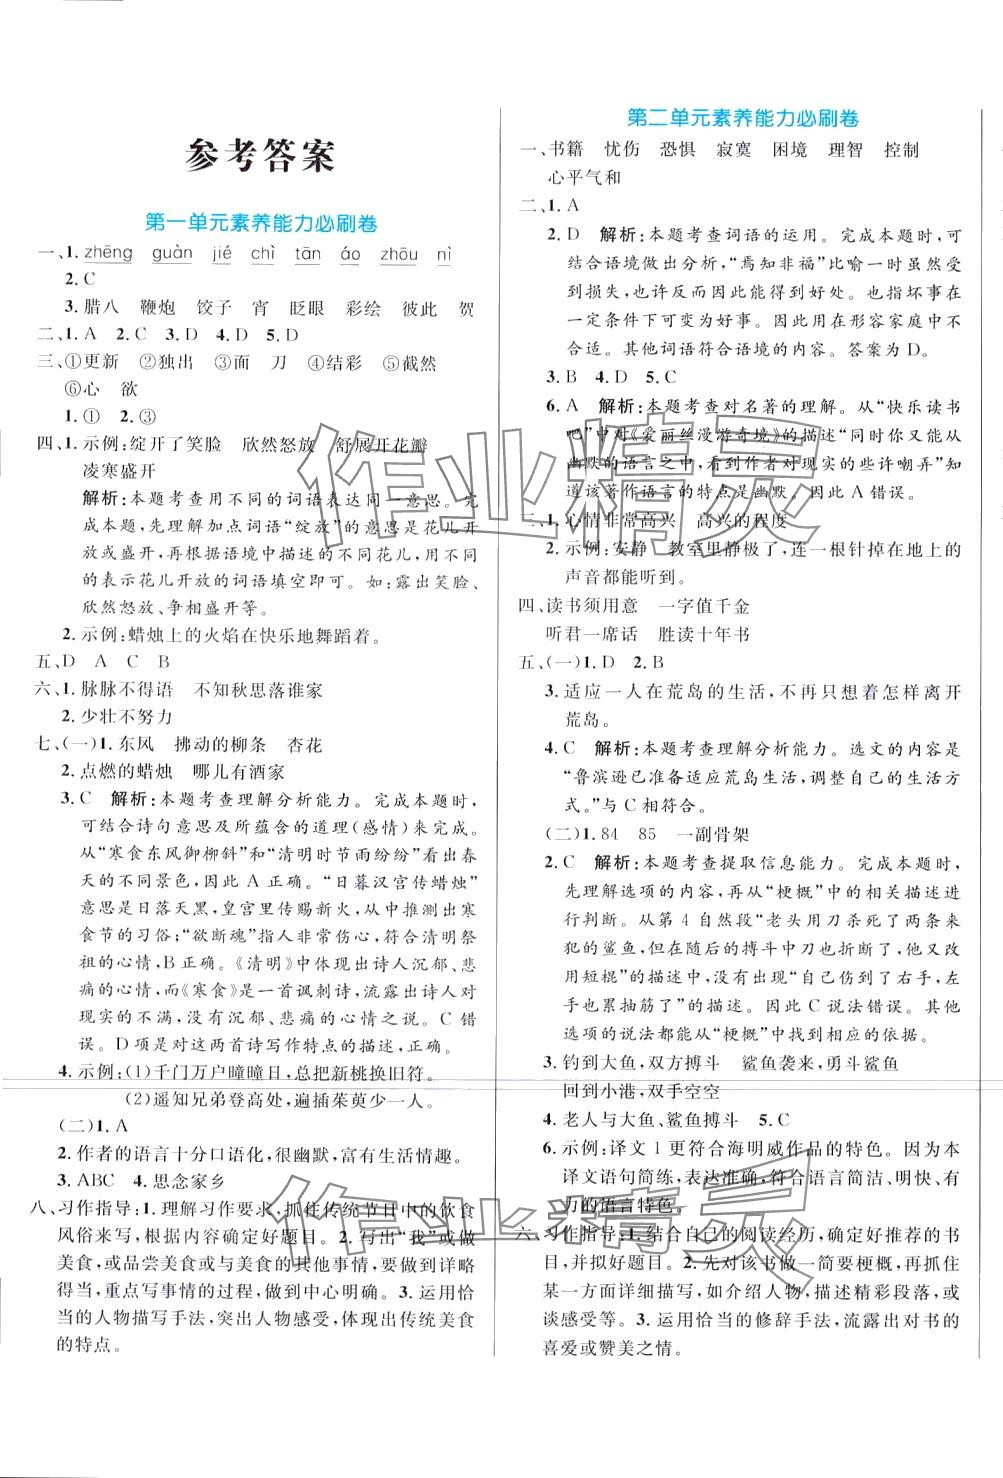 参考答案
第一单元素养能力必刷卷
一、1. zhēng guàn jié chì tān áo zhōu nì
2. C
3. 腊八 鞭炮 饺子 宵 眨眼 彩绘 彼此 贺
二、1. A 2. C 3. D 4. D 5. D
三、①更新 ②独出 ③面 刀 ④结彩 ⑤截然
⑥心 欲
1. ① 2. ③
四、1. 示例:绽开了笑脸 欣然怒放 舒展开花瓣
凌寒盛开
解析:本题考查用不同的词语表达同一意思。完
成本题,先理解加点词语“绽放”的意思是花儿开
放或盛开,再根据语境描述的不同花儿,用不同
的表示花儿开放的词语填空即可。如:露出笑脸、
欣然怒放、争相盛开等。
2. 示例:蜡烛上的火焰在快乐地舞蹈着。
五、D A C B
六、1. 脉脉不得语 不知秋思落谁家
2. 少壮不努力
七、(一)1. 东风 拂动的柳条 杏花
2. 点燃的蜡烛 哪儿有酒家
3. C 解析:本题考查理解分析能力。完成本题时,
可结合诗句意思及所蕴含的道理(感情)来完成。
从“寒食东风御柳斜”和“清明时节雨纷纷”看出春
天的不同景色,因此 A 正确。“日暮汉宫传蜡烛”
意思是日落天黑,皇宫里传新火,从中推测出寒
食节的习俗;“欲断魂”指非常伤心,符合清明祭
祖的心情,B 正确。《清明》中体现出诗人沉郁、悲
痛的心情,而《寒食》是一首讽刺诗,流露出诗人对
现实的不满,没有沉郁、悲痛的心情之说。C 错
误。D 项是对这两首诗写作特点的描述,正确。
4. 示例:(1)千门万户曈曈日,总把新桃换旧符。
(2)遥知兄弟登高处,遍插茱萸少一人。
(二)1. A
2. 作者的语言十分口语化,很幽默,富有生活情趣。
3. ABC 4. 思念家乡
八、习作指导:1. 理解习作要求,抓住传统节日中的饮食
风俗来写,根据内容确定好题目。2. 写出“我”或做
美食,或品尝美食或与美食的其他事情,要做到详略
得当,重点写事情的过程,做到中心明确。3. 运用恰
当的人物描写手法,突出人物感受,体现出传统美食
的特点。
第二单元素养能力必刷卷
一、书籍 忧伤 恐惧 寂寞 困境 理智 控制
心平气和
二、1. A
2. D 解析:本题考查词语的运用。完成本题时,可
结合语境做出分析,“焉知非福”比喻一时虽然受
到损失,也许反而因此能得到好处。也指坏事在
一定条件下可变为好事。因此用在形容家庭中不
合适。其他词语符合语境的内容。答案为 D。
3. B 4. D 5. C
6. A 解析:本题考查对名著的理解。从“快乐读书
吧”中对《爱丽丝漫游奇境》的描述“同时你又能从
幽默的语言之中,看到作者对现实的些许嘲弄”知
道该著作语言的特点是幽默。因此 A 错误。
三、1. 心情非常高兴 高兴的程度
2. 示例:安静 教室里静极了,连一根针掉在地上的
声音都能听到。
四、读书须用意 一字值千金
听君一席话 胜读十年书
五、(一)1. D 2. B
3. 适应一人在荒岛的生活,不再只想着怎样离开
荒岛。
4. C 解析:本题考查理解分析能力。选文的内容是
“鲁滨逊已准备适应荒岛生活,调整自己的生活方
式。”与 C 相符合。
(二)1. 84 85 一副骨架
2. C 解析:本题考查提取信息能力。完成本题时,
先理解选项的内容,再从“梗概”中的相关描述进
行判断。从第 4 自然段“老头用刀杀死了两条来
犯的鲨鱼,但在随后的搏斗中刀也折断了,他又改
用短棍”的描述中,没有出现“自己伤到了右手,左
手也累抽筋了”的描述。因此 C 说法错误。其他
选项的说法都能从“梗概”中找到相应的依据。
3. 钓到大鱼,双方搏斗 鲨鱼袭来,勇斗鲨鱼
回到小港,双手空空
4. 老人与大鱼、鲨鱼搏斗 5. C
6. 示例:译文 1 更符合海明威作品的特色。因为本
译文语句简练,表达准确,符合语言简洁、明快、有
力的语言特色。
六、习作指导:1. 结合自己的阅读经历,确定好推荐的书
目,并拟好题目。2. 先对该书做一简要梗概,再抓住
某一方面详细描写,如介绍人物,描述精彩段落,或
谈感受等。3. 运用恰当的修辞手法,流露出对书的
喜爱或赞美之情。
作业精灵
作业精灵